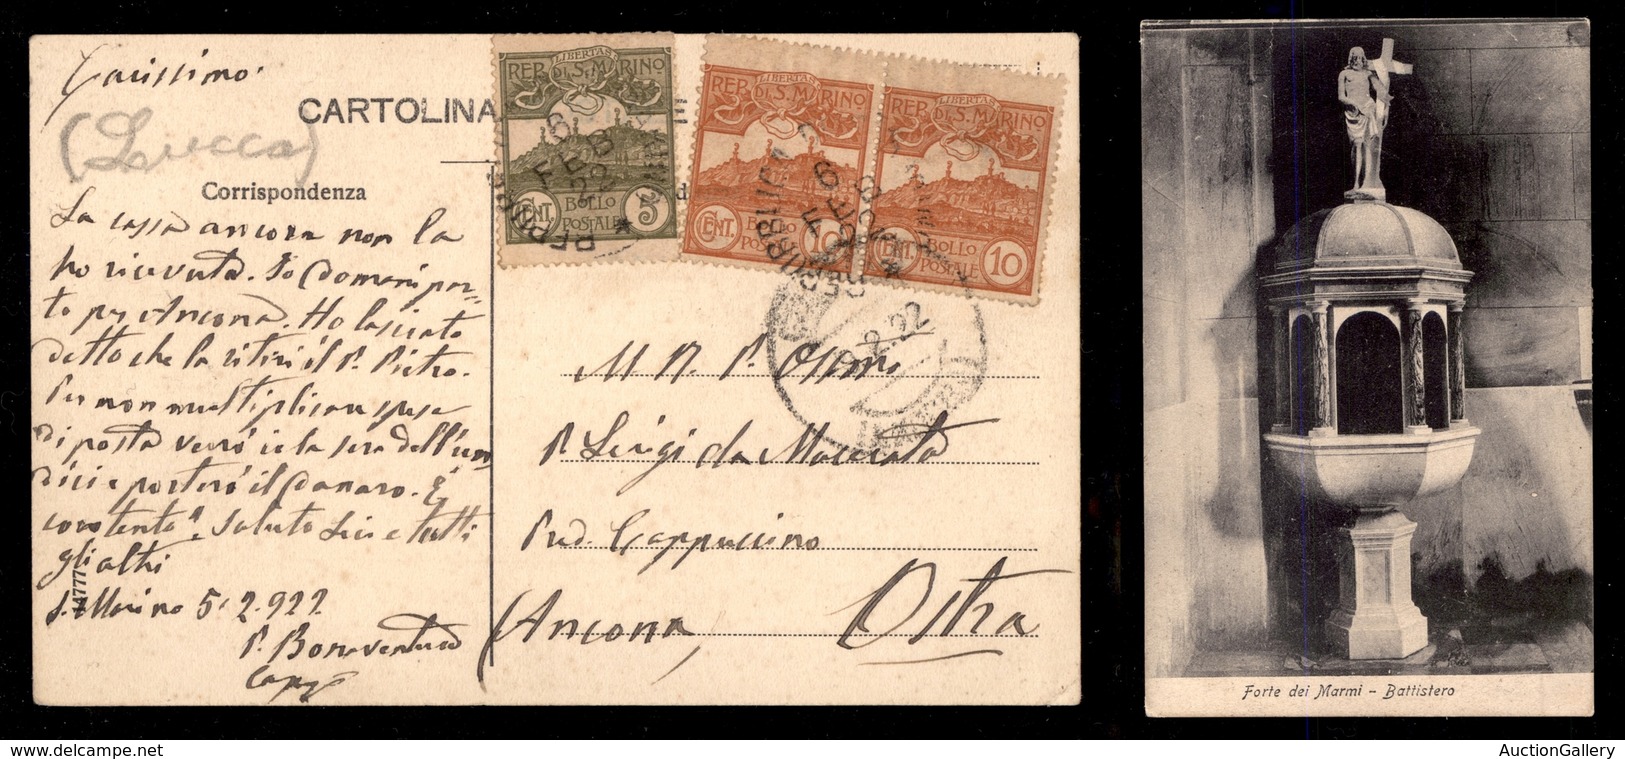 Carissimo.
(Lucca)
CARTOLINA
Corrispondenza
La cassa ancora non la
ho ricevuta. Io domani par-
to per Ancona. Ho lasciato
detto che la ritiri il P. Pietro.
Per non multiplicare spese
di posta verrò io la sera dell'un
dici e porterò il danaro. È
contento? Saluto Lei e tutti
gli altri
S. Marino 5.2.922
P. Bonaventura
14777
LIBERTAS
REP. DI S. MARINO
CENT. 5
BOLLO POSTALE
6 FEB 22
LIBERTAS
REP. DI S. MARINO
CENT. 10
BOLLO POSTALE
LIBERTAS
REP. DI S. MARINO
CENT. 10
BOLLO POSTALE
2.22
M. R. P.
P. Luigi da Macerata
Pred. Cappuccino
(Ancona) Ostra
Forte dei Marmi - Battistero
www.delcampe.net
AuctionGallery